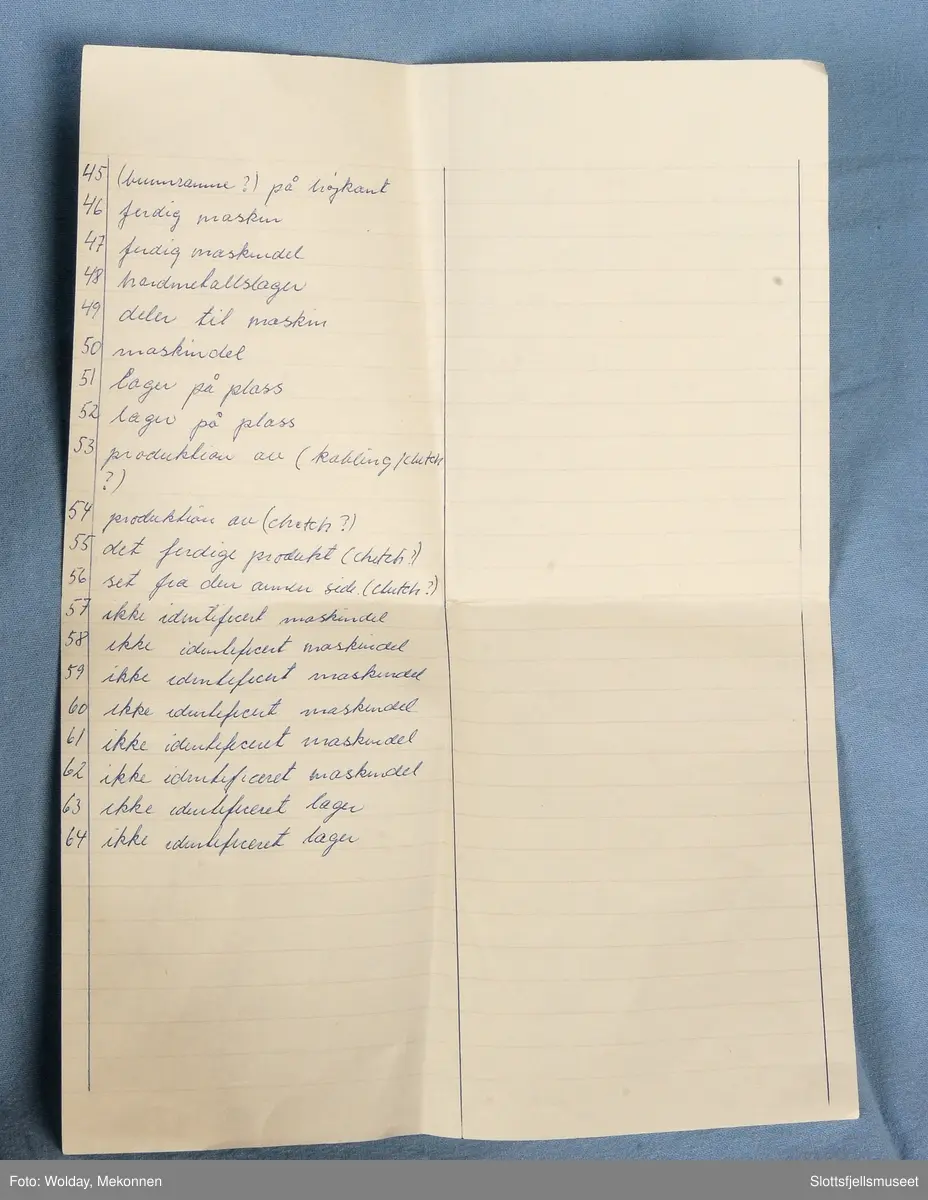 45 (bunnramme?) på höjkant
46 ferdig maskin
47 ferdig maskindel
48 hardmetallslager
49 deler til maskin
50 maskindel
51 lager på plass
52 lager på plass
53 produktion av (kobling/clutch
?)
54 produktion av (clutch?)
55 det ferdige produkt (clutch?)
56 set fra den annen side. (clutch?)
57 ikke identificert maskindel
58 ikke identificert maskindel
59 ikke identificert maskindel
60 ikke identificert maskindel
61 ikke identificeret maskindel
62 ikke identificeret maskindel
63 ikke identificeret lager
64 ikke identificeret lager
Foto: Wolday, Mekonnen
Slottsfjellsmuseet